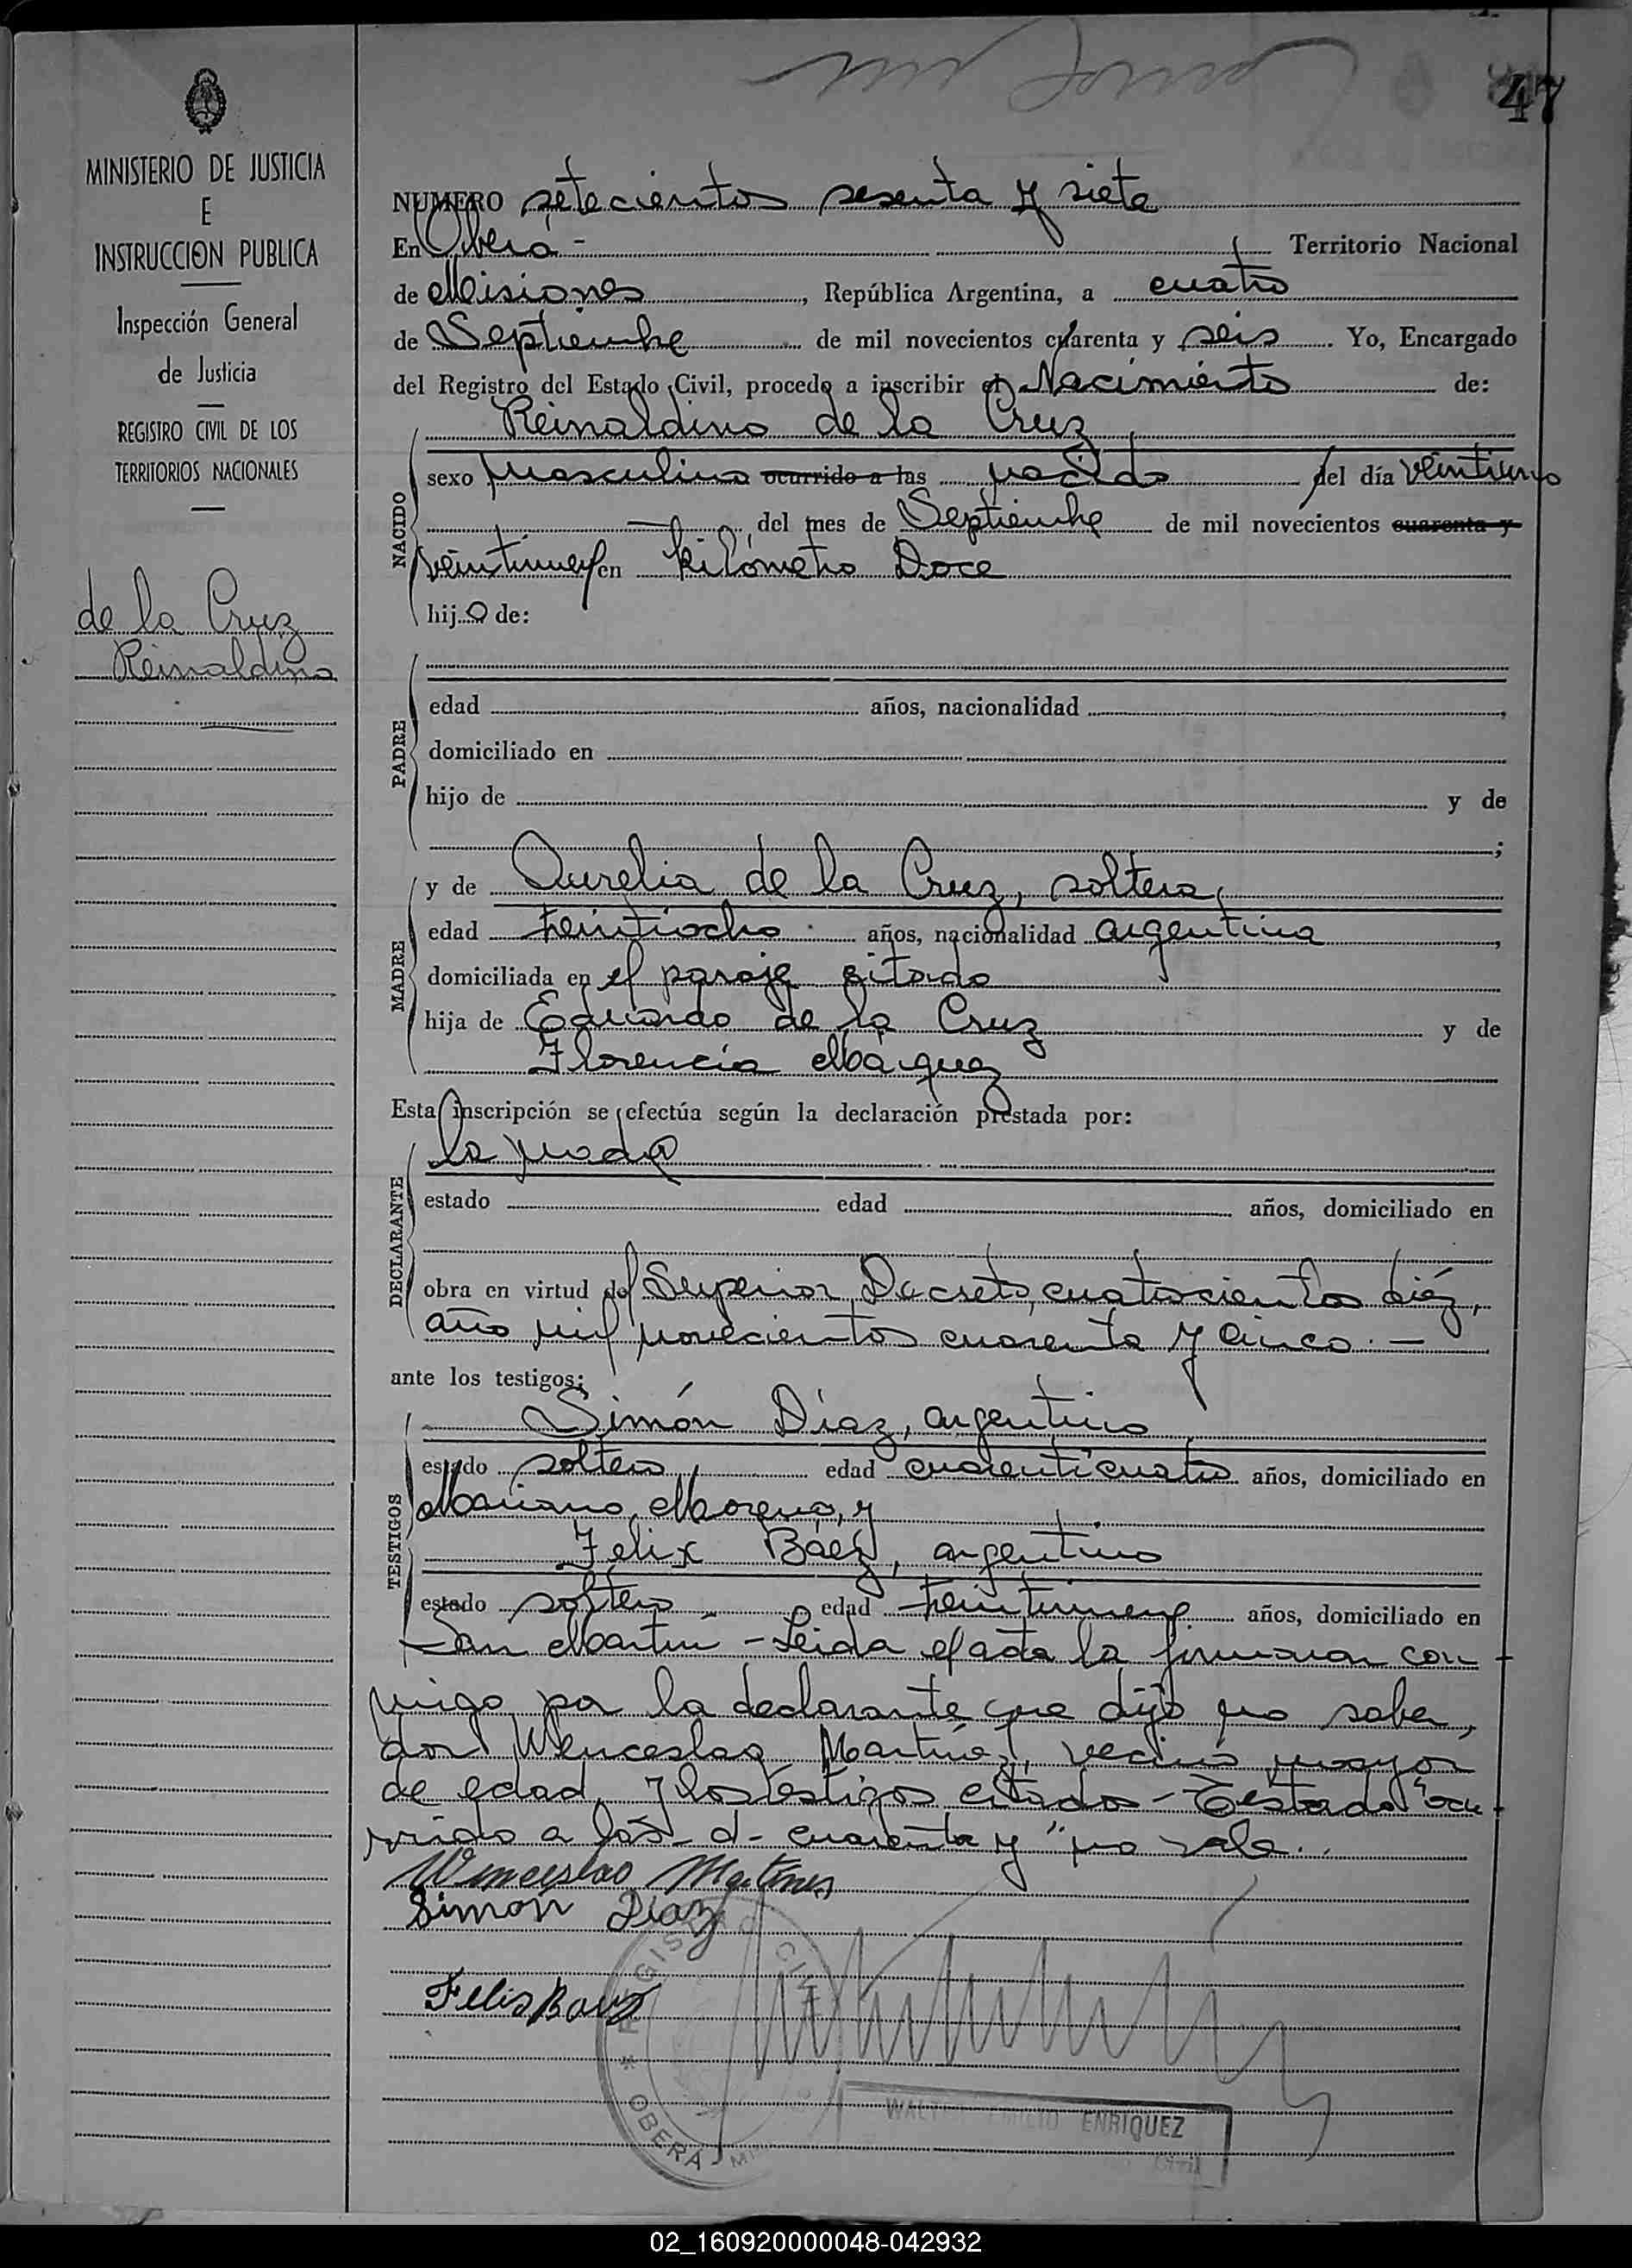 47
MINISTERIO DE JUSTICIA
E
INSTRUCCION PUBLICA
Inspección General
de Justicia
REGISTRO CIVIL DE LOS
TERRITORIOS NACIONALES
de la Cruz
Reinaldino
NUMERO setecientos sesenta y siete
En Oberá - Territorio Nacional
de Misiones, República Argentina, a cuatro
de Septiembre de mil novecientos cuarenta y seis. Yo, Encargado
del Registro del Estado Civil, procedo a inscribir el Nacimiento de:
Reinaldino de la Cruz
NACIDO
sexo masculino ocurrido a las nacido del día veintiuno
del mes de Septiembre de mil novecientos cuarenta y
en kilómetro Doce
hijo de:
PADRE
edad años, nacionalidad
domiciliado en
hijo de y de
;
MADRE
y de Aurelia de la Cruz, soltera,
edad treintiocho años, nacionalidad argentina,
domiciliada en el paraje citado
hija de Eduardo de la Cruz y de
Florencia Márquez
Esta inscripción se efectúa según la declaración prestada por:
DECLARANTE
la madre
estado edad años, domiciliado en
obra en virtud del Superior Decreto, cuatrocientos diéz,
año mil novecientos cuarenta y cinco. -
ante los testigos:
TESTIGOS
Simón Díaz, argentino
estado soltero, edad cuarenticuatro años, domiciliado en
Mariano Moreno, y
Felix Báez, argentino
estado soltero edad treintinueve años, domiciliado en
San Martín - Leida el acta la firmaron con
migo por la declarante que dijo no saber,
don Wenceslao Martínez, vecino mayor
de edad, y los testigos citados - Testado "ocu
rrido a las - d - cuarenta y" no vale.
Wenceslao Martines
Simón Diaz
Felis Baez
REGISTRO CIVIL
* OBERA
WALTER EMILIO ENRIQUEZ
Civil
02_160920000048-042932